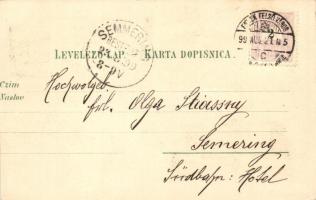 SEMMERING
LEVELEZŐ-LAP. KARTA DOPISNICA.
Czim
Naslov
Hochwolgeb.
frl. Olga
Semering
Südbahn: Hotel